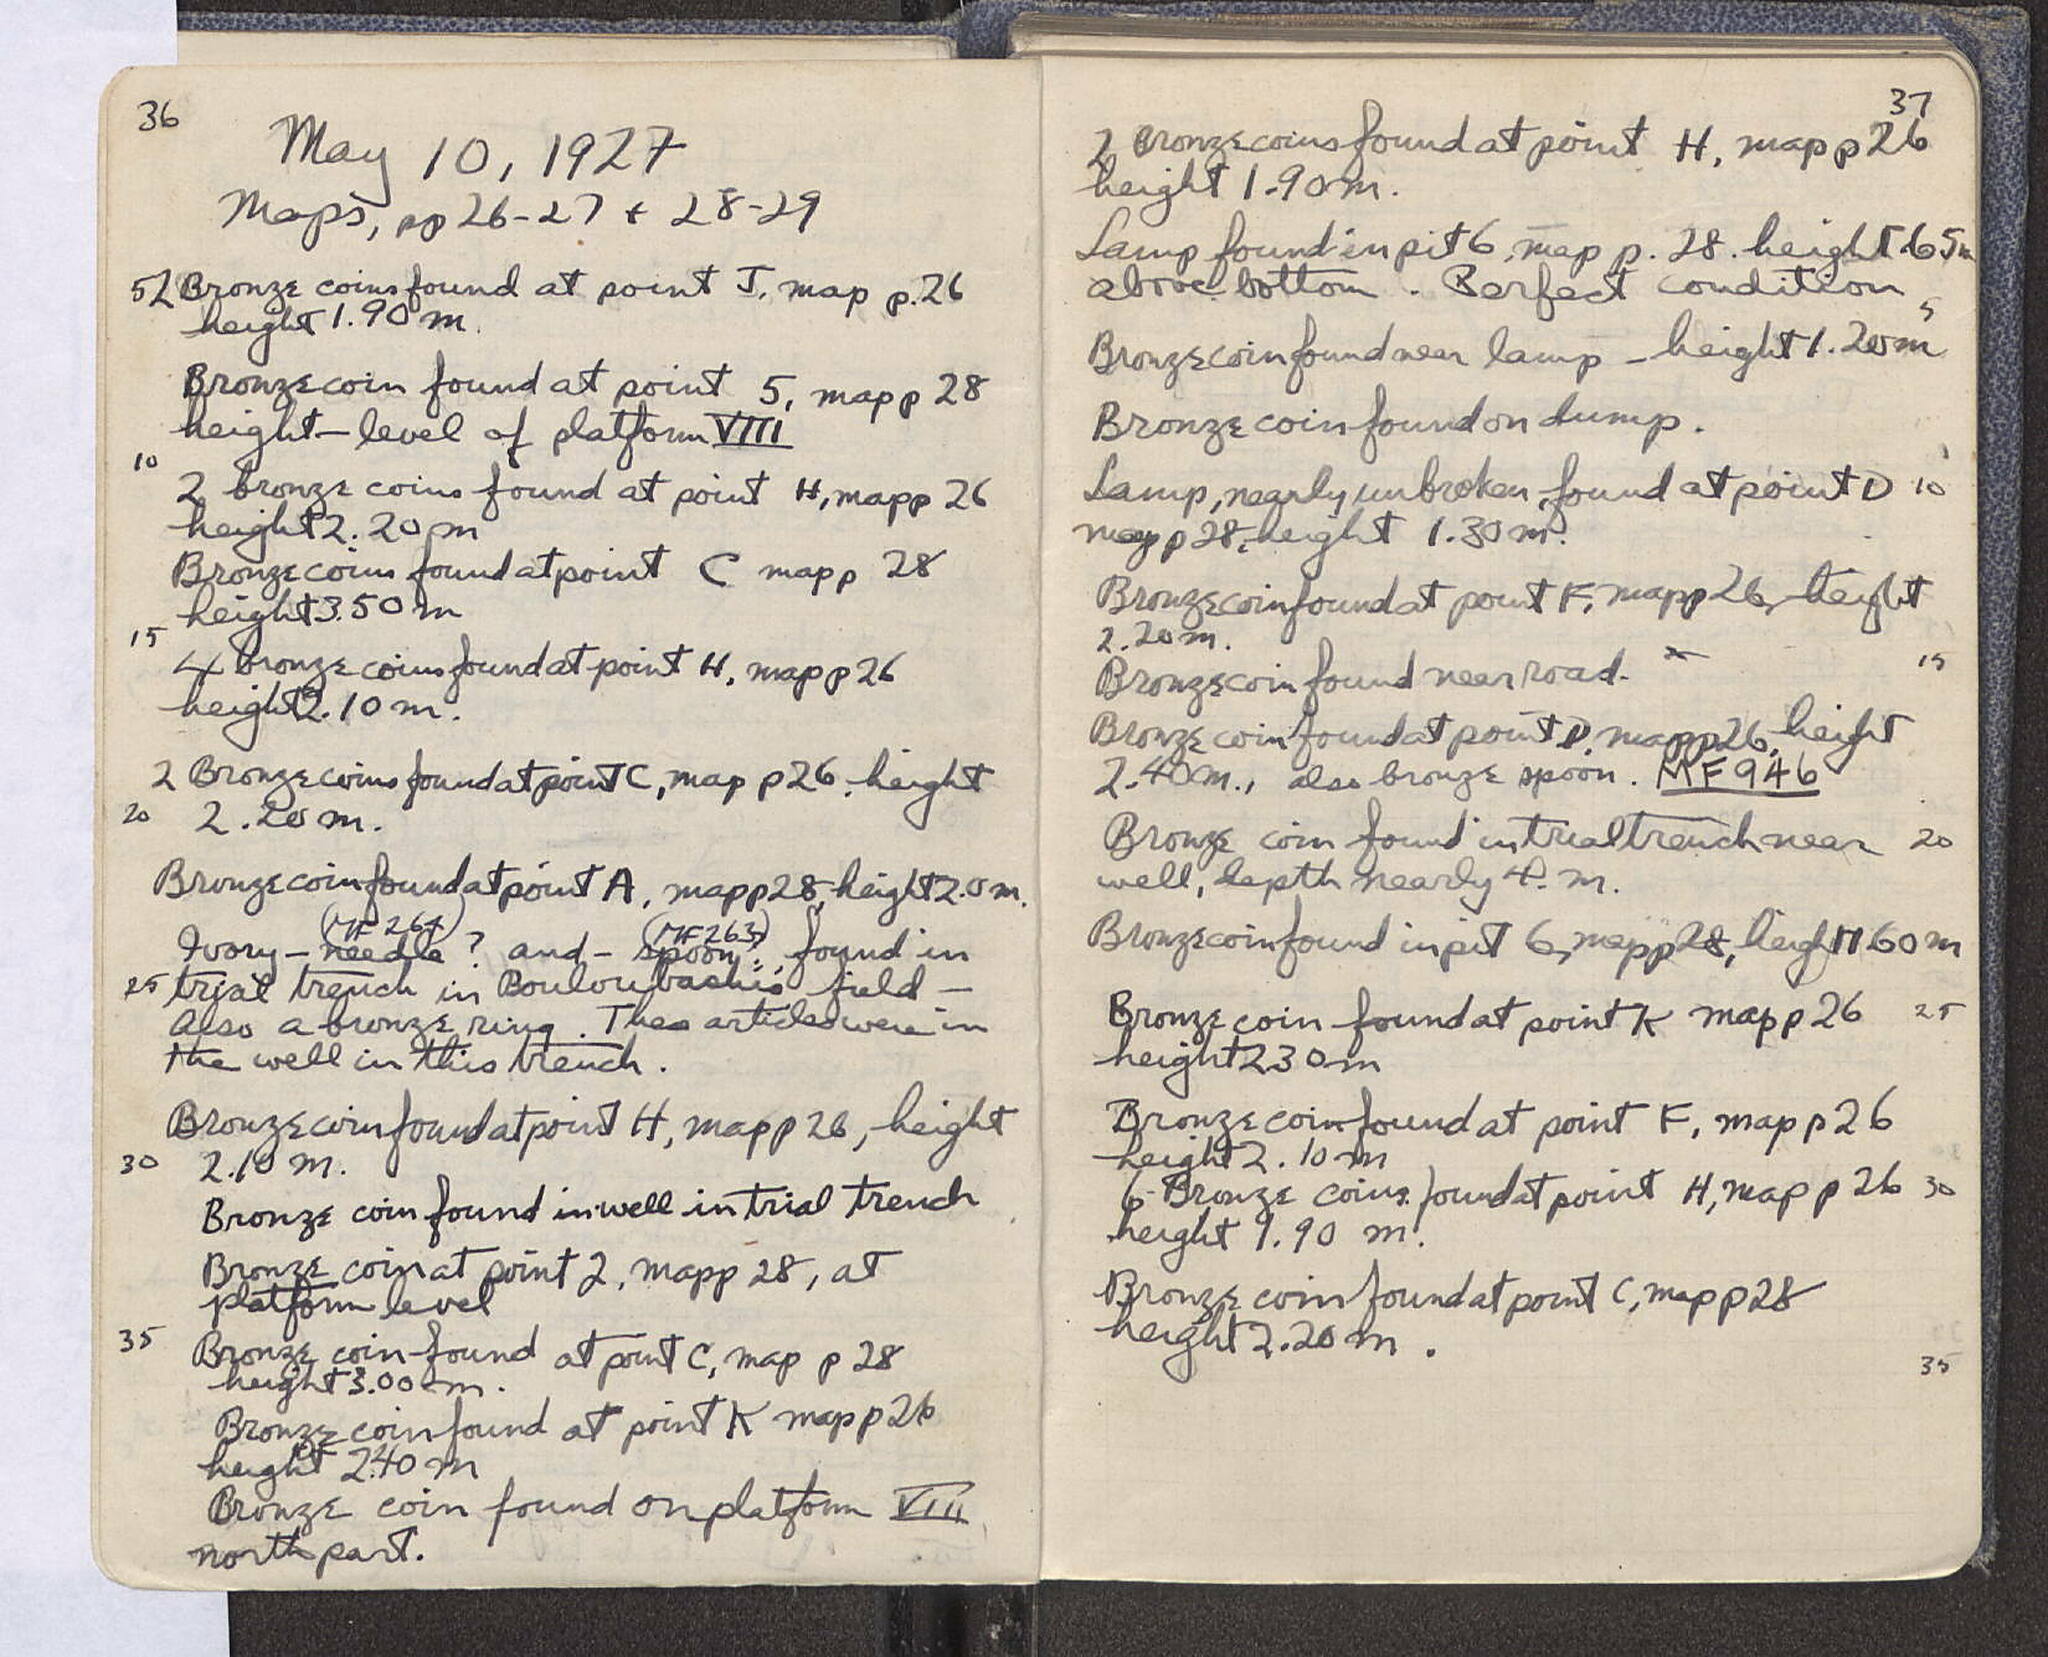 36
May 10, 1927
Maps, pp 26-27 + 28-29
5 2 Bronze coins found at point J, map p. 26
height 1.90 m.
Bronze coin found at point 5, map p 28
height - level of platform VIII
10
2 bronze coins found at point H, map p 26
height 2.20 m
Bronze coins found at point C map p 28
height 3.50 m
15
4 bronze coins found at point H, map p 26
height 2.10 m.
2 Bronze coins found at point C, map p 26, height
20 2.20 m.
Bronze coin found at point A, map p 28, height 2.0 m.
(MF 264) (MF 263)
Ivory - needle? and - spoon?, found in
25 trial trench in Bouloubashis field -
Also a bronze ring. Thes articles were in
the well in this trench.
Bronze coin found at point H, map p 26, height
30 2.10 m.
Bronze coin found in well in trial trench
Bronze coin at point 2, map p 28, at
platform level
35 Bronze coin found at point C, map p 28
height 3.00 m.
Bronze coin found at point K map p 26
height 2.40 m
Bronze coin found on platform VIII
north part.
37
2 Bronze coins found at point H, map p 26
height 1.90 m.
Lamp found in pit 6, map p. 28. height 1.65 m
above bottom. Perfect condition
5
Bronze coin found near lamp - height 1.20 m
Bronze coin found on dump.
Lamp, nearly unbroken, found at point D 10
map p 28, height 1.30 m.
Bronze coin found at point F, map p 26, height
2.20 m.
Bronze coin found near road. x 15
Bronze coin found at point D, map p 26, height
2.40 m., also bronze spoon. MF 946
Bronze coin found in trial trench near 20
well, depth nearly 4. m.
Bronze coin found in pit 6, map p 28, height 1.60 m
Bronze coin found at point K map p 26 25
height 2.30 m
Bronze coin found at point F, map p 26
height 2.10 m
6 Bronze coins found at point H, map p 26 30
height 1.90 m.
Bronze coin found at point C, map p 28
height 2.20 m.
35